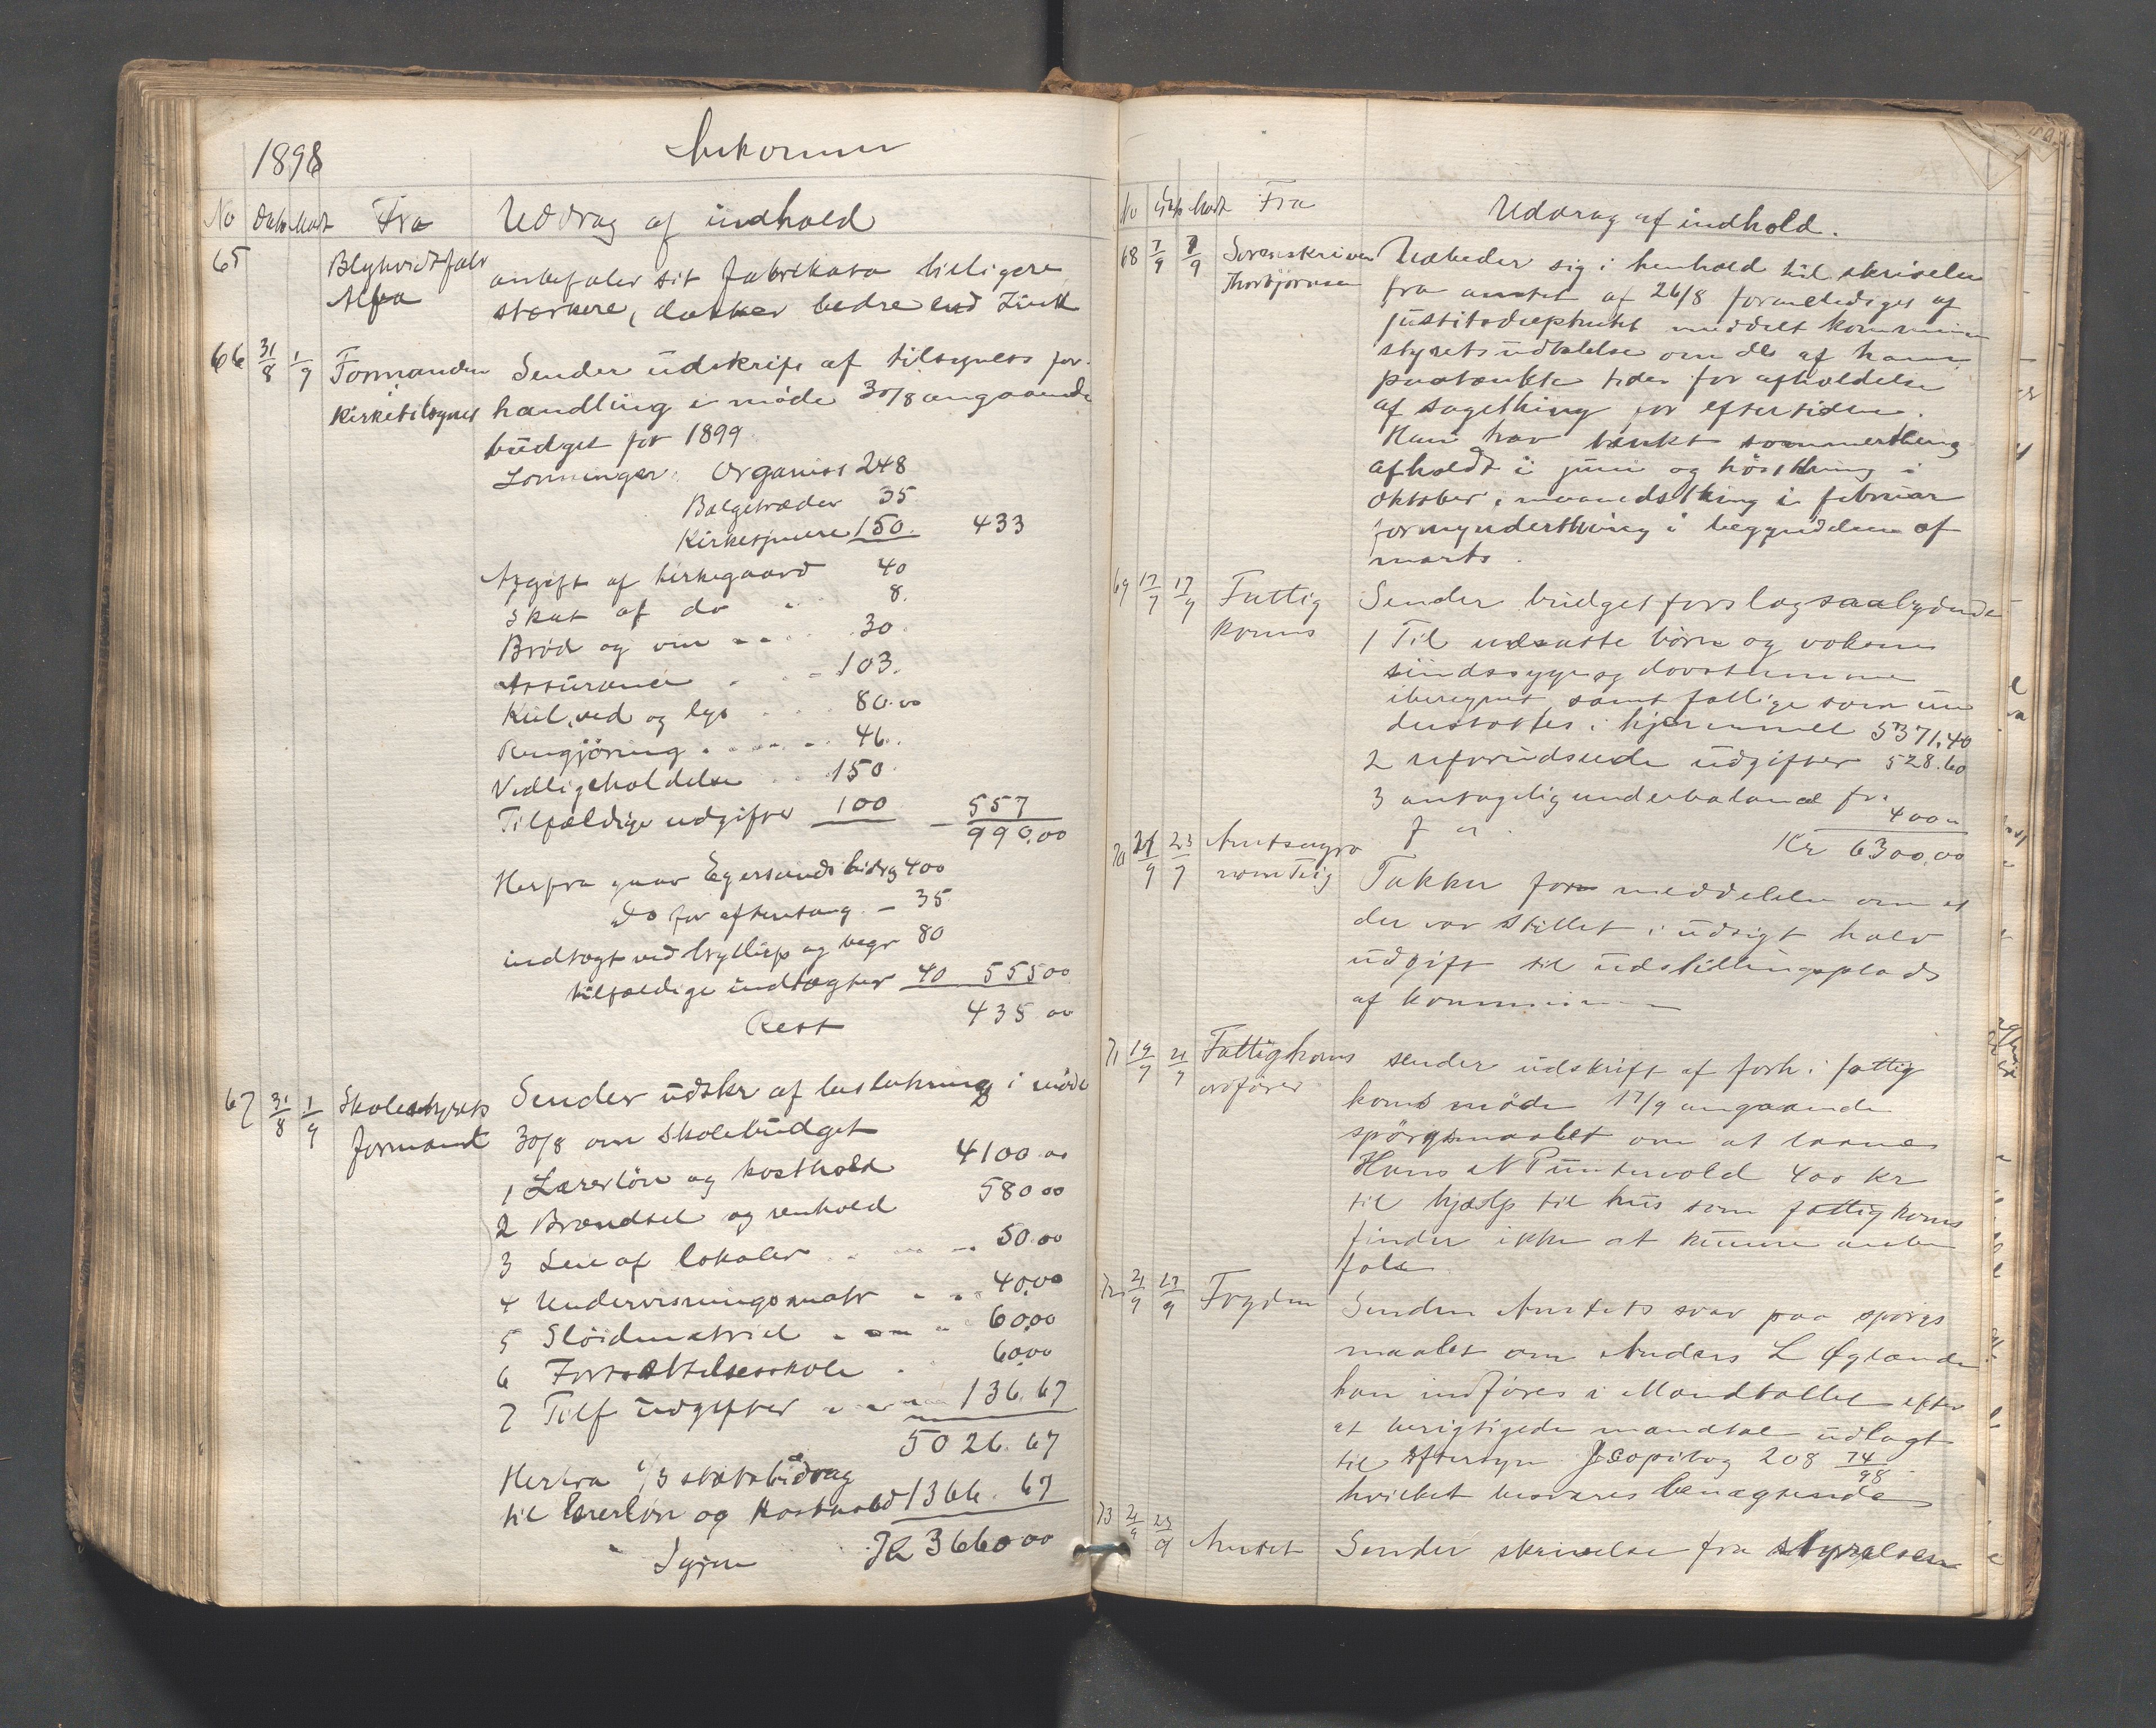 1898
Inkomne
No Dato Modt Fra Uddrag af indhold
65 Blyhvidtfabr anbefaler sit fabrikata billigere
Alfa stærkere, dækker bedre end Zink
66 31/8 1/9 Formanden Sender udskrift af tilsynets for-
Kirketilsynet handling i møde 30/8 angaaende
budget for 1899
Lønninger: Organist 248
Bælgetræder 35
Kirketjenere 150. 433
Afgift af kirkegaard 40
Skat af do 8.
Brød og vin 30
Assurance 103.
Kul, ved og lys 80.00
Rengjøring 46.
Vedligeholdelse 150
Tilfældige udgifter 100 557
990.00
Herfra gaar Egersunds bidrag 400
do for aftensang 35
indtægt ved bryllup og begr 80
tilfældige indtægter 40 555 00
Rest 435 00
67 31/8 1/9 Skolestyrets Sender udskr af beslutning i møde
formand 30/8 om skolebudget
1 Lærerløn og kosthold 4100 00
2 Brændsel og renhold 580 00
3 Leie af lokaler 50.00
4 Undervisningsmatr 40.00
5 Slöidmatriel 60.00
6 Fortsættelsesskole 60.00
7 Tilf udgifter 136.67
5026.67
Herfra 1/3 statsbidrag
til lærerløn og kosthold 1366.67
Igjen Kr 3660 00
No Dato Modt Fra Uddrag af indhold.
68 7/9 7/9 Sorenskriver Udbeder sig i henhold til skrivelse
Thorbjörnsen fra amtet af 26/8 foranlediget af
justitsdeptmtet meddelt kommune
styrets udtalelse om de af ham
paatænkte tider for afholdelse
af sagething for eftertiden.
Han har tænkt sommerthing
afholdt i juni og høstthing i
oktober, maanedsthing i februar
formynderthing i begyndelsen af
marts.
69 17/9 17/9 Fattig Sender budgetforslag saalydende
koms 1 Til udsatte börn og voksne
sindssyge og døvstumme
iberegnet, samt fattige som un
derstøttes i hjemmet 5371,40
2 uforudseede udgifter 528.60
3 antagelig underbalance fr.
f a 400 "
Kr 6300.00
70 21/9 23/9 Amtsagro
nom Teig Takker for meddelelse om at
der var stillet i udsigt halv
udgift til udstillingsplads
af kommunen
71 19/9 21/9 Fattigkoms sender udskrift af forh. i fattig
ordfører koms møde 17/9 angaaende
spörgsmaalet om at laane
Hans N Puntervold 400 kr
til hjælp til hus som fattigkoms
finder ikke at kunne anbe
fale
72 21/9 23/9 Fogden Sender Amtets svar paa spörgs
maalet om Anders L Øglænde
kan indføres i Mandtallet efter
at berigtigede mandtal udlagt
til eftersyn. Jr Copibog 208 74/98
hvilket besvares benægtende
73 21/9 23/9 Amtet Sender skrivelse fra styrelsen